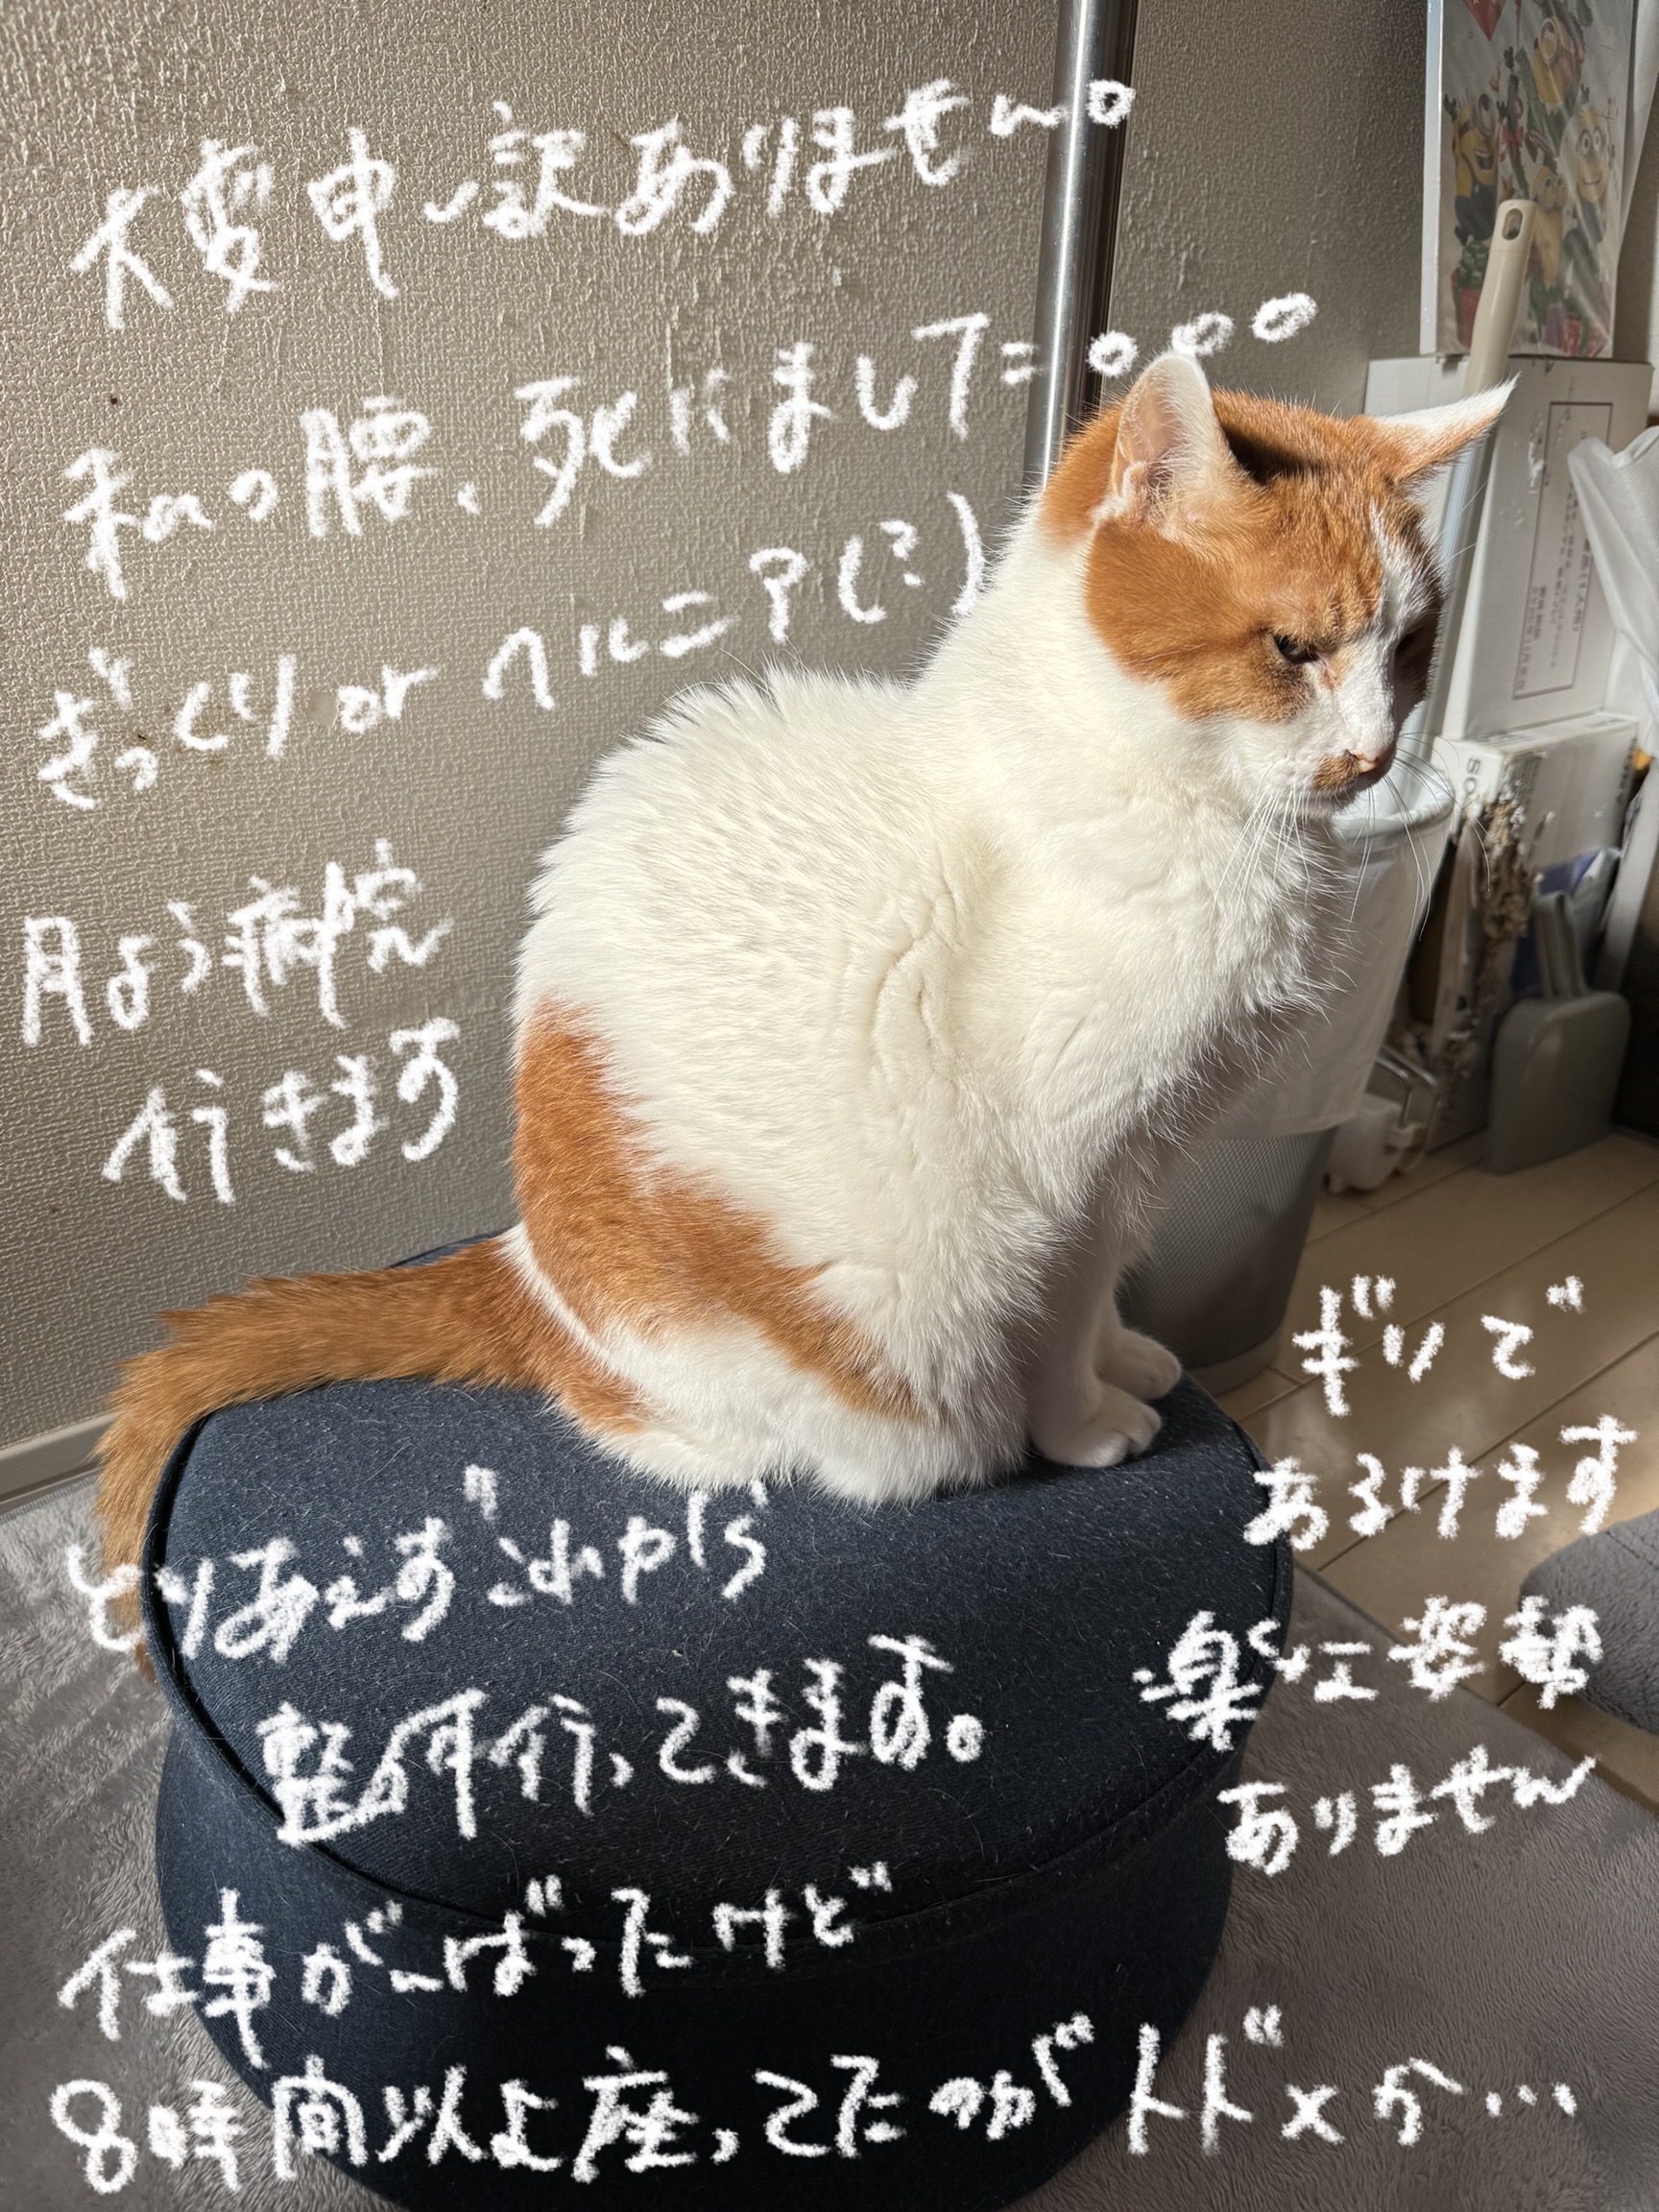 大変申し訳ありません。
私の腰、死にまして。。。
ぎっくり or ヘルニア(?)
月よう病院
行きます
ギリで
あるけます
楽な姿勢
ありません
とりあえずこれから
整体行ってきます。
仕事がんばったけど
8時間以上座ってたのがトドメか…